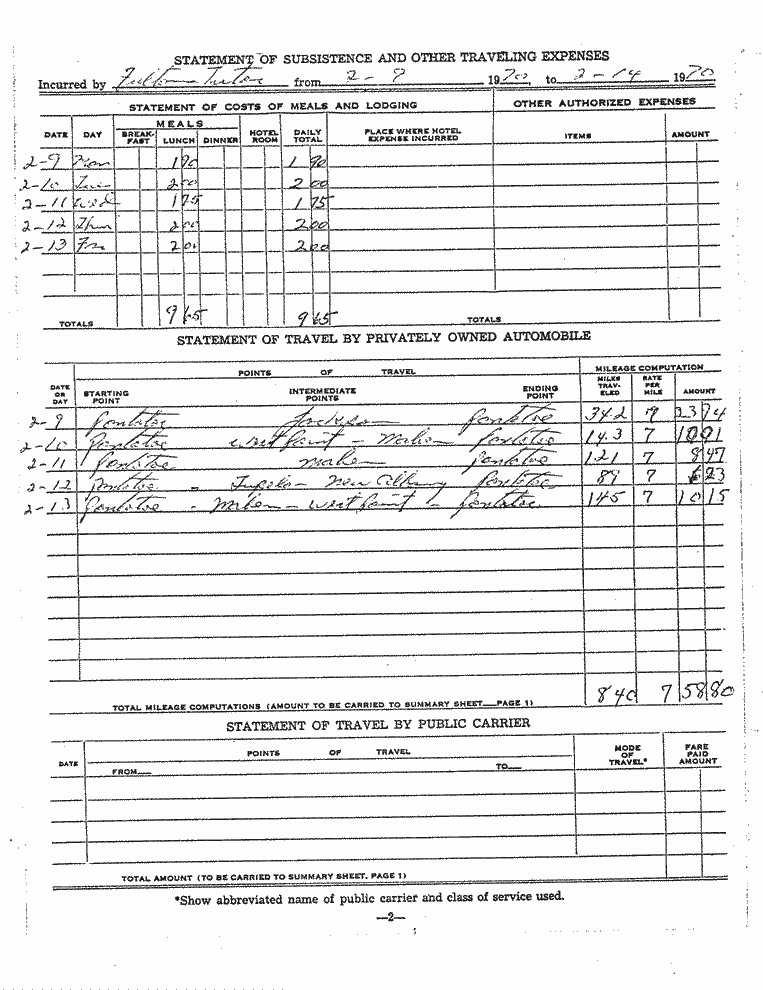 STATEMENT OF SUBSISTENCE AND OTHER TRAVELING EXPENSES
Incurred by Fulton Tutor from 2-9 1970, to 2-14 1970
STATEMENT OF COSTS OF MEALS AND LODGING OTHER AUTHORIZED EXPENSES
DATE DAY MEALS BREAK-FAST LUNCH DINNER HOTEL ROOM DAILY TOTAL PLACE WHERE HOTEL EXPENSE INCURRED ITEMS AMOUNT
2-9 Mon 1 90 1 90
2-10 Tue 2 00 2 00
2-11 Wed 1 75 1 75
2-12 Thur 2 00 2 00
2-13 Fri 2 00 2 00
TOTALS 9 65 9 65 TOTALS
STATEMENT OF TRAVEL BY PRIVATELY OWNED AUTOMOBILE
DATE OR DAY POINTS OF TRAVEL MILEAGE COMPUTATION
STARTING POINT INTERMEDIATE POINTS ENDING POINT MILES TRAV-ELED RATE PER MILE AMOUNT
2-9 Pontotoc Jackson Pontotoc 342 7 23 94
2-10 Pontotoc West Point - Macon Pontotoc 143 7 10 01
2-11 Pontotoc Macon Pontotoc 121 7 8 47
2-12 Pontotoc - Tupelo - New Albany Pontotoc 89 7 6 23
2-13 Pontotoc - Macon - West Point - Pontotoc 145 7 10 15
TOTAL MILEAGE COMPUTATIONS (AMOUNT TO BE CARRIED TO SUMMARY SHEET—PAGE 1) 840 7 58 80
STATEMENT OF TRAVEL BY PUBLIC CARRIER
DATE POINTS OF TRAVEL MODE OF TRAVEL* FARE PAID AMOUNT
FROM— TO—
TOTAL AMOUNT (TO BE CARRIED TO SUMMARY SHEET, PAGE 1)
*Show abbreviated name of public carrier and class of service used.
—2—